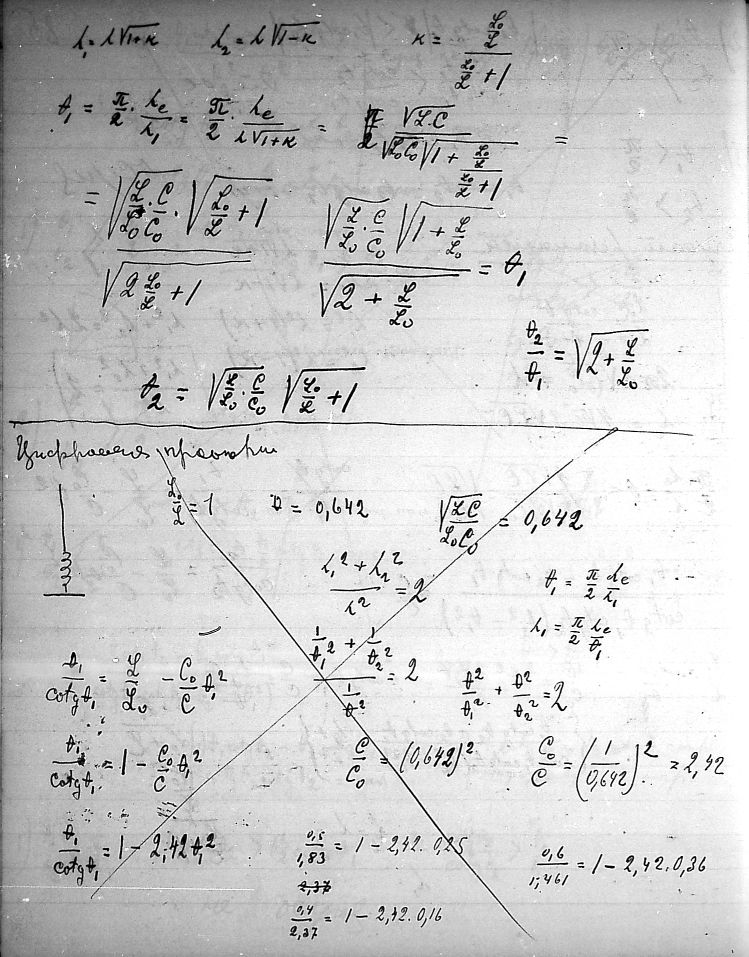 λ₁ = λ√(1+κ)    λ₂ = λ√(1−κ)    κ = (L₀/L)/(L₀/L + 1)
θ₁ = π/2 · λe/λ₁ = π/2 · λe/(λ√(1+κ)) = π/2 √(L·C)/(√(L₀C₀) √(1 + (L₀/L)/(L₀/L + 1))) =
= √(L/L₀ · C/C₀) · √(L₀/L + 1) / √(2 L₀/L + 1)    √(L/L₀ · C/C₀) √(1 + L/L₀) / √(2 + L/L₀) = θ₁
θ₂/θ₁ = √(2 + L/L₀)
θ₂ = √(L/L₀ · C/C₀) √(L₀/L + 1)
Цифровая
L₀/L = 1    θ = 0,642    √(LC)/(L₀C₀) = 0,642
(λ₁² + λ₂²)/λ² = 2    θ₁ = π/2 λe/λ₁
λ₁ = π/2 λe/θ₁
(1/θ₁² + 1/θ₂²)/(1/θ²) = 2
θ₁/cotgθ₁ = L/L₀ − C₀/C θ₁²    θ²/θ₁² + θ²/θ₂² = 2
θ₁/cotgθ₁ = 1 − C₀/C θ₁²    C/C₀ = (0,642)²    C₀/C = (1/0,642)² = 2,42
θ₁/cotgθ₁ = 1 − 2,42θ₁²    0,5/1,83 = 1 − 2,42·0,25    0,6/1,461 = 1 − 2,42·0,36
2,37
0,4/2,37 = 1 − 2,42·0,16